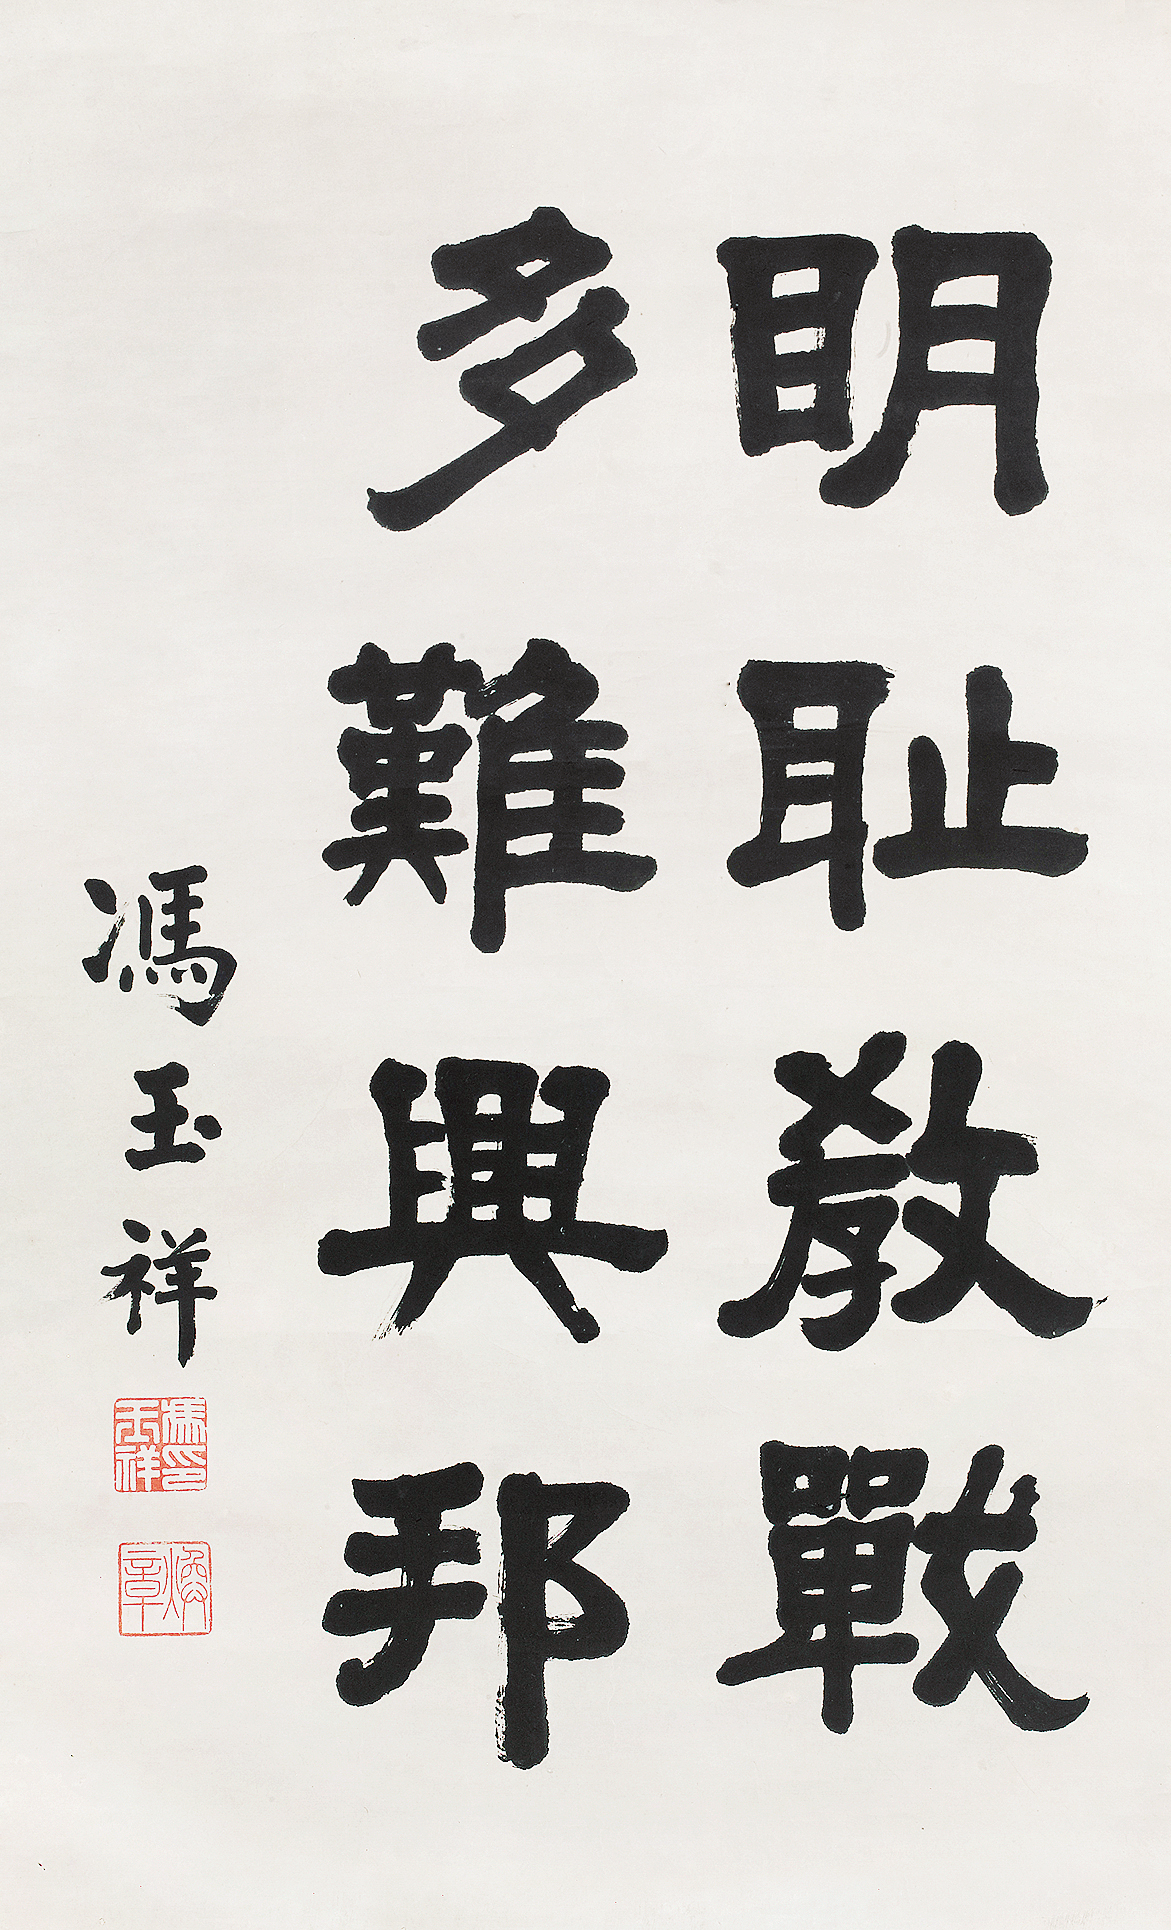 眀耻教戰
多難興邦
馮玉祥
馮玉祥印
煥章